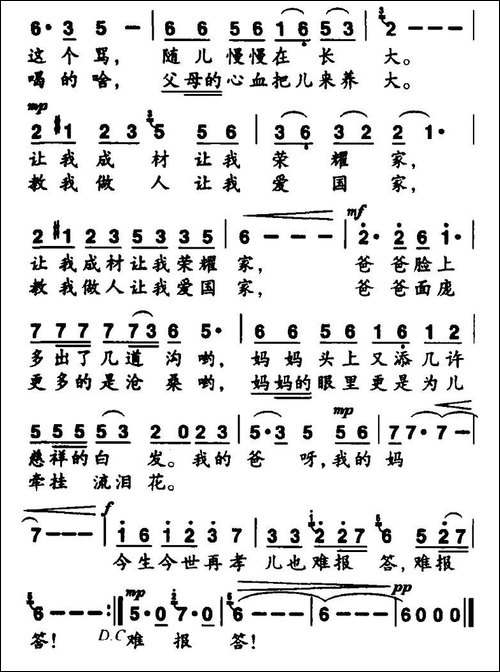 6· 3 5 – | 6 6 5 6 1 6 5 3 | 2 – – – |
这个骂， 随儿慢慢在长 大。
喝的啥，父母的心血把儿来养 大。
mp
2 #1 2 3 5 5 6 | 3 6 3 2 2 1· |
让我成 材 让我 荣 耀 家，
教我做 人 让我 爱 国 家，
mf
2 #1 2 3 5 3 3 5 | 6 – – – | 2· 2 6 1· |
让我成材让我荣耀 家， 爸 爸脸上
教我做人让我爱国 家， 爸 爸面庞
7 7 7 7 7 3 6 5· | 6 6 5 6 1 6 1 2 |
多出了几道 沟 哟， 妈妈头上又添几许
更多的是沧 桑 哟，妈妈的眼里更是为儿
mp
5 5 5 5 3 2 0 2 3 | 5· 3 5 5 6 | 7 7· 7 – |
慈祥的白 发。我的 爸 呀，我的 妈
牵挂 流泪 花。
f
7 – – – | 1 6 1 2 3 7 | 3 3 2 2 7 6 5 2 7 |
今生今世再孝 儿也难报 答，难报
mp pp
6 – – – :‖ 5· 0 7· 0 | 6 – – – | 6 – – – | 6 0 0 0 ‖
答！ D.C 难 报 答！